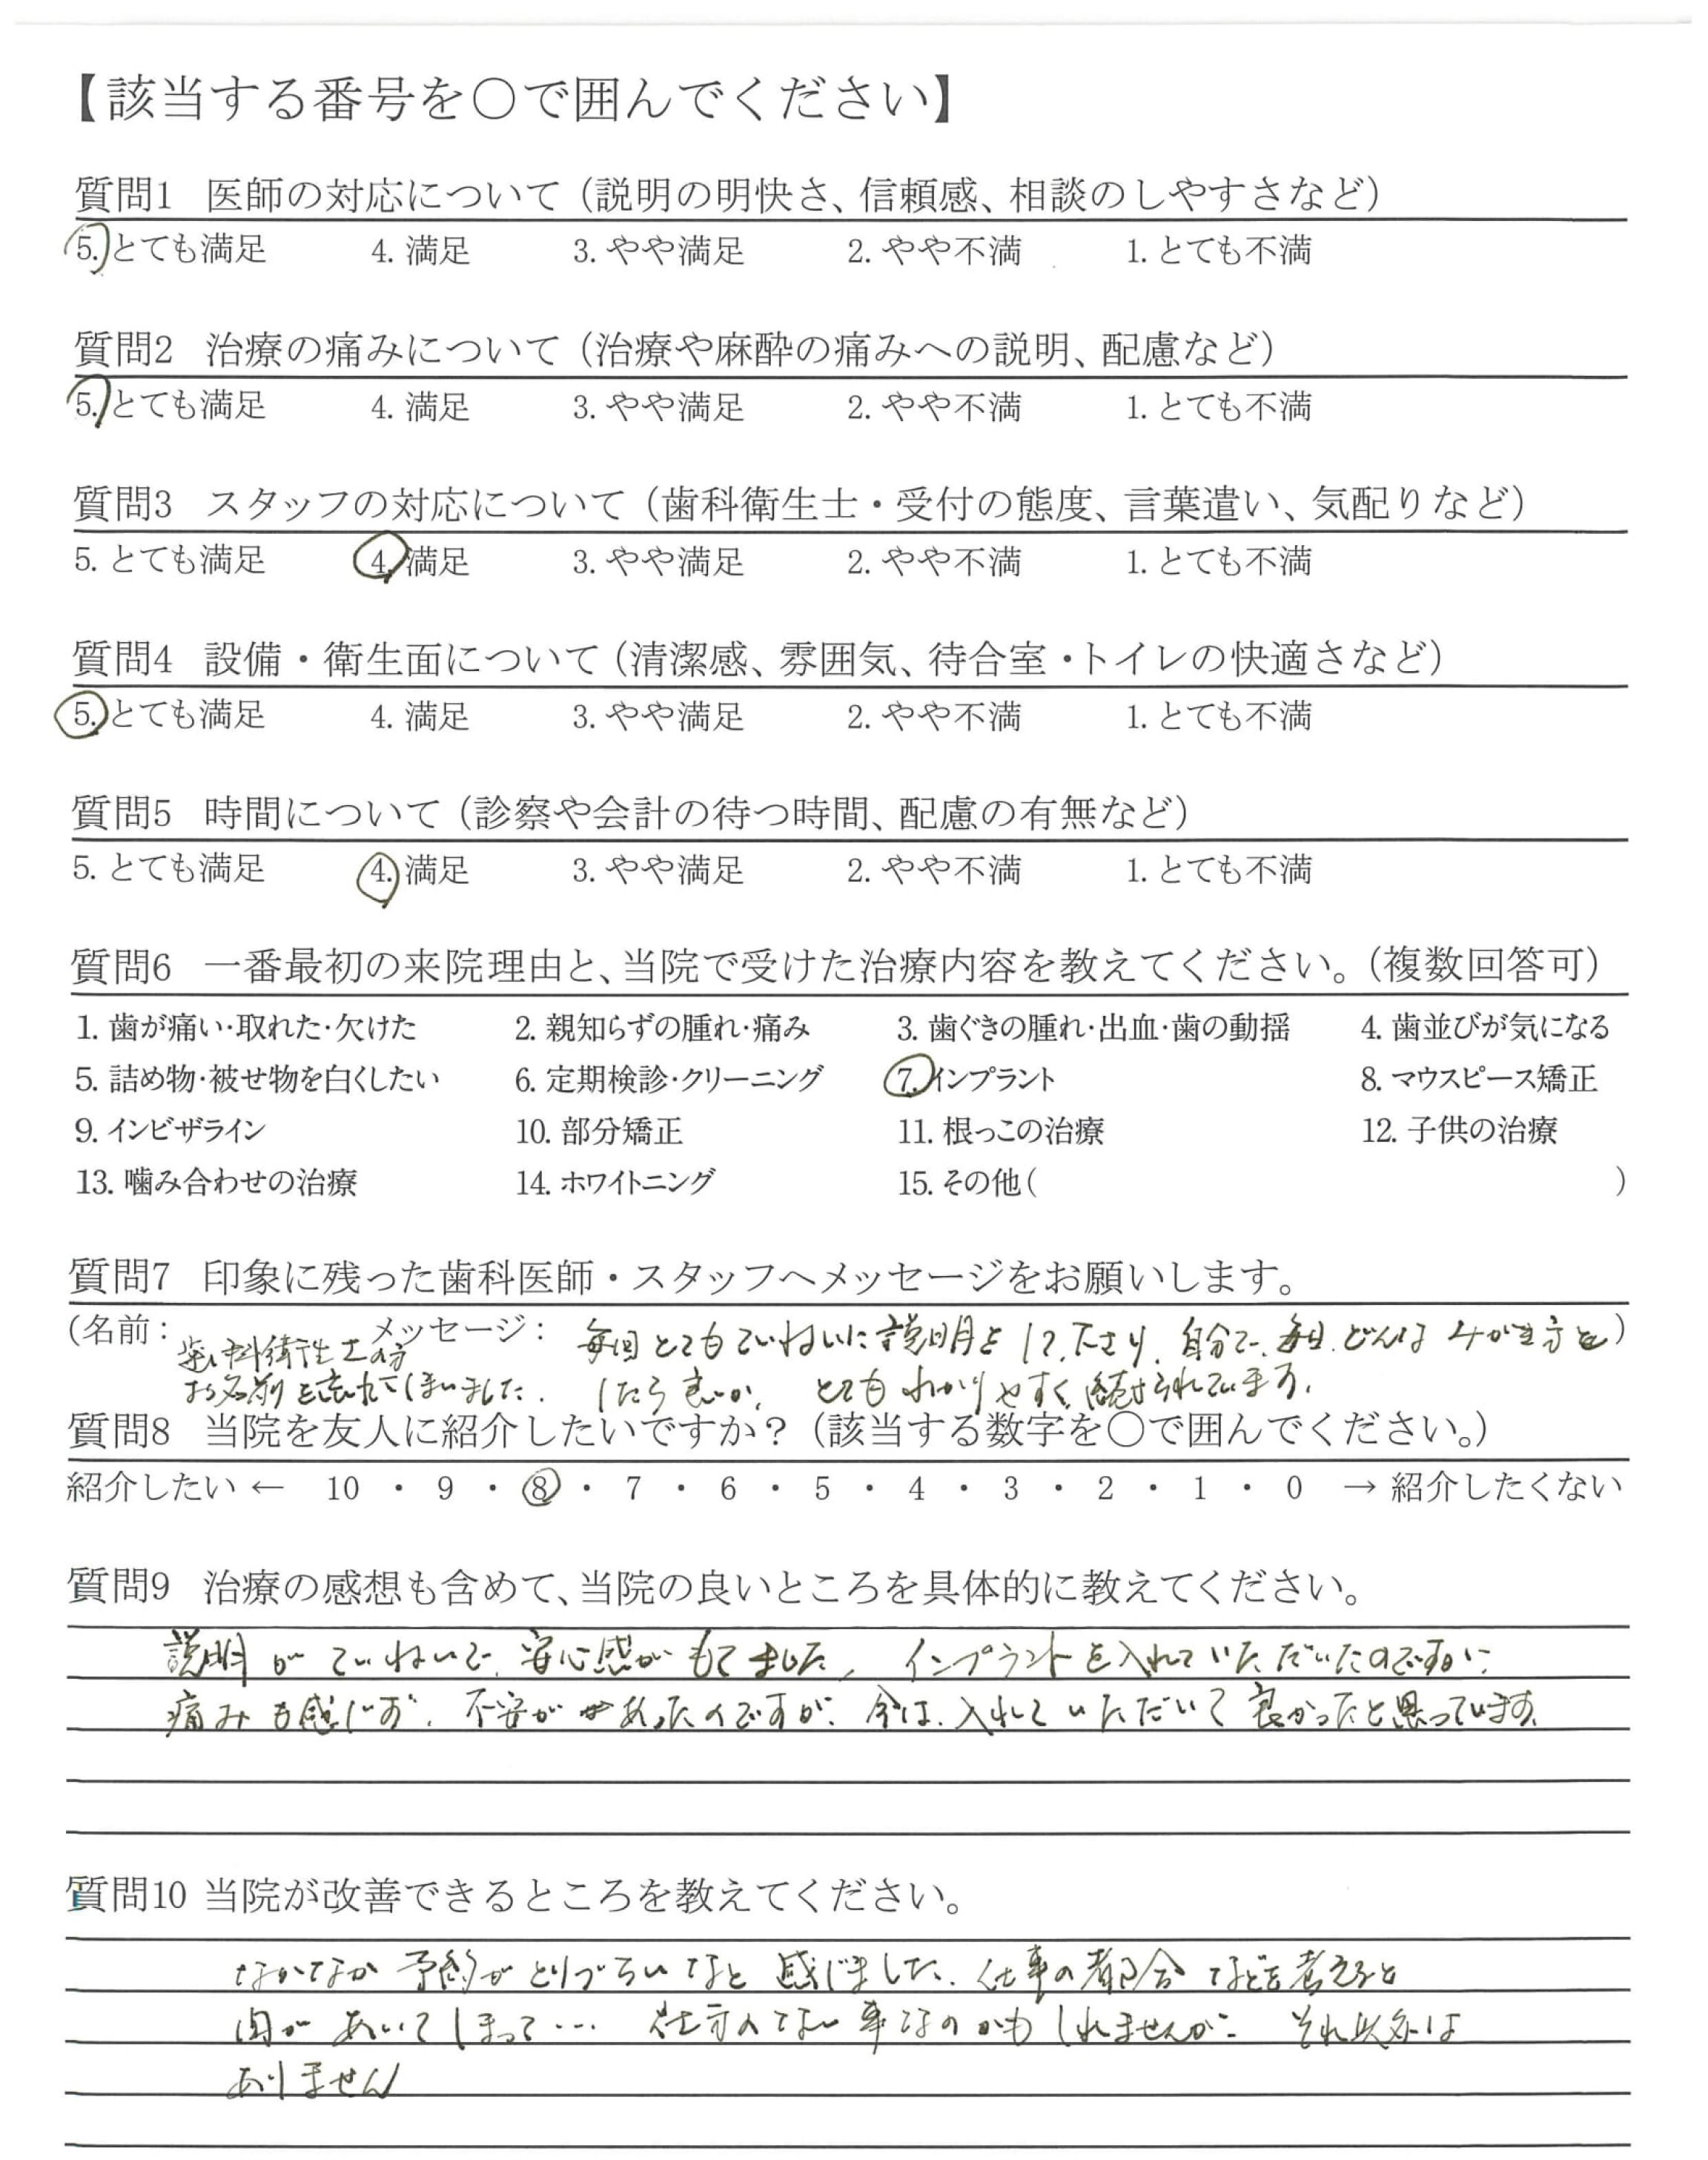 【該当する番号を○で囲んでください】
質問1 医師の対応について（説明の明快さ、信頼感、相談のしやすさなど）
5. とても満足 4. 満足 3. やや満足 2. やや不満 1. とても不満
質問2 治療の痛みについて（治療や麻酔の痛みへの説明、配慮など）
5. とても満足 4. 満足 3. やや満足 2. やや不満 1. とても不満
質問3 スタッフの対応について（歯科衛生士・受付の態度、言葉遣い、気配りなど）
5. とても満足 4. 満足 3. やや満足 2. やや不満 1. とても不満
質問4 設備・衛生面について（清潔感、雰囲気、待合室・トイレの快適さなど）
5. とても満足 4. 満足 3. やや満足 2. やや不満 1. とても不満
質問5 時間について（診察や会計の待つ時間、配慮の有無など）
5. とても満足 4. 満足 3. やや満足 2. やや不満 1. とても不満
質問6 一番最初の来院理由と、当院で受けた治療内容を教えてください。（複数回答可）
1. 歯が痛い・取れた・欠けた 2. 親知らずの腫れ・痛み 3. 歯ぐきの腫れ・出血・歯の動揺 4. 歯並びが気になる
5. 詰め物・被せ物を白くしたい 6. 定期検診・クリーニング 7. インプラント 8. マウスピース矯正
9. インビザライン 10. 部分矯正 11. 根っこの治療 12. 子供の治療
13. 噛み合わせの治療 14. ホワイトニング 15. その他( )
質問7 印象に残った歯科医師・スタッフへメッセージをお願いします。
(名前： 歯科衛生士の方 メッセージ： 毎回とてもていねいに説明をして下さり、自分で、毎日、どんなみがき方を)
お名前を忘れてしまいました. したら良いか、とてもわかりやすく、続けられています。
質問8 当院を友人に紹介したいですか？（該当する数字を○で囲んでください。）
紹介したい ← 10 ・ 9 ・ 8 ・ 7 ・ 6 ・ 5 ・ 4 ・ 3 ・ 2 ・ 1 ・ 0 → 紹介したくない
質問9 治療の感想も含めて、当院の良いところを具体的に教えてください。
説明がていねいで、安心感がもてました。インプラントを入れていただいたのですが、
痛みも感じず、不安があったのですが、今は、入れていただいて良かったと思っています。
質問10 当院が改善できるところを教えてください。
なかなか予約がとりづらいなと感じました、仕事の都合などを考えると
間があいてしまって… 仕方のない事なのかもしれませんが… それ以外は
ありません